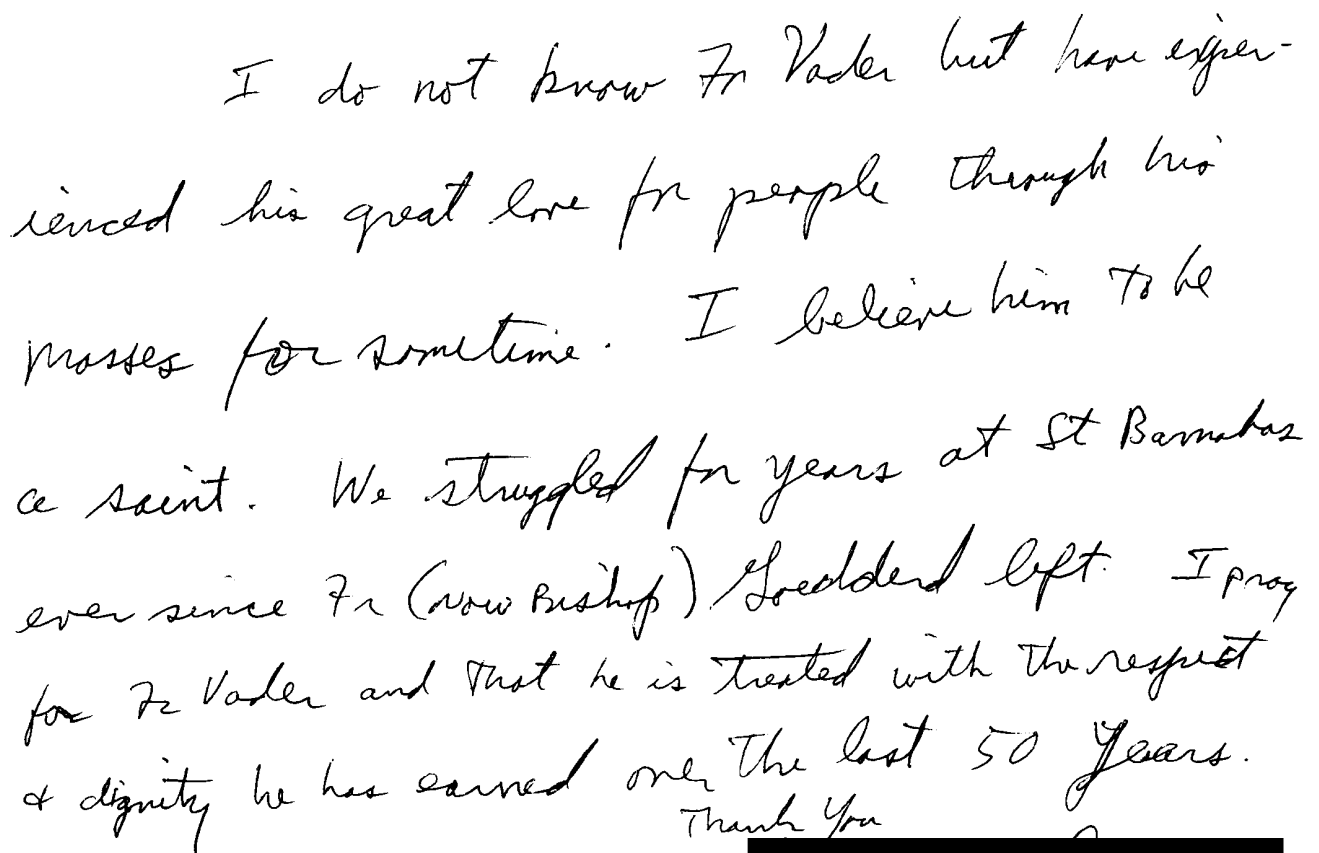 I do not know Fr Vader but have exper-
ienced his great love for people through his
Masses for sometime. I believe him to be
a saint. We struggled for years at St Barnabas
ever since Fr (now Bishop) Goedderd left. I pray
for Fr Vader and that he is treated with the respect
& dignity he has earned over the last 50 years.
Thank You